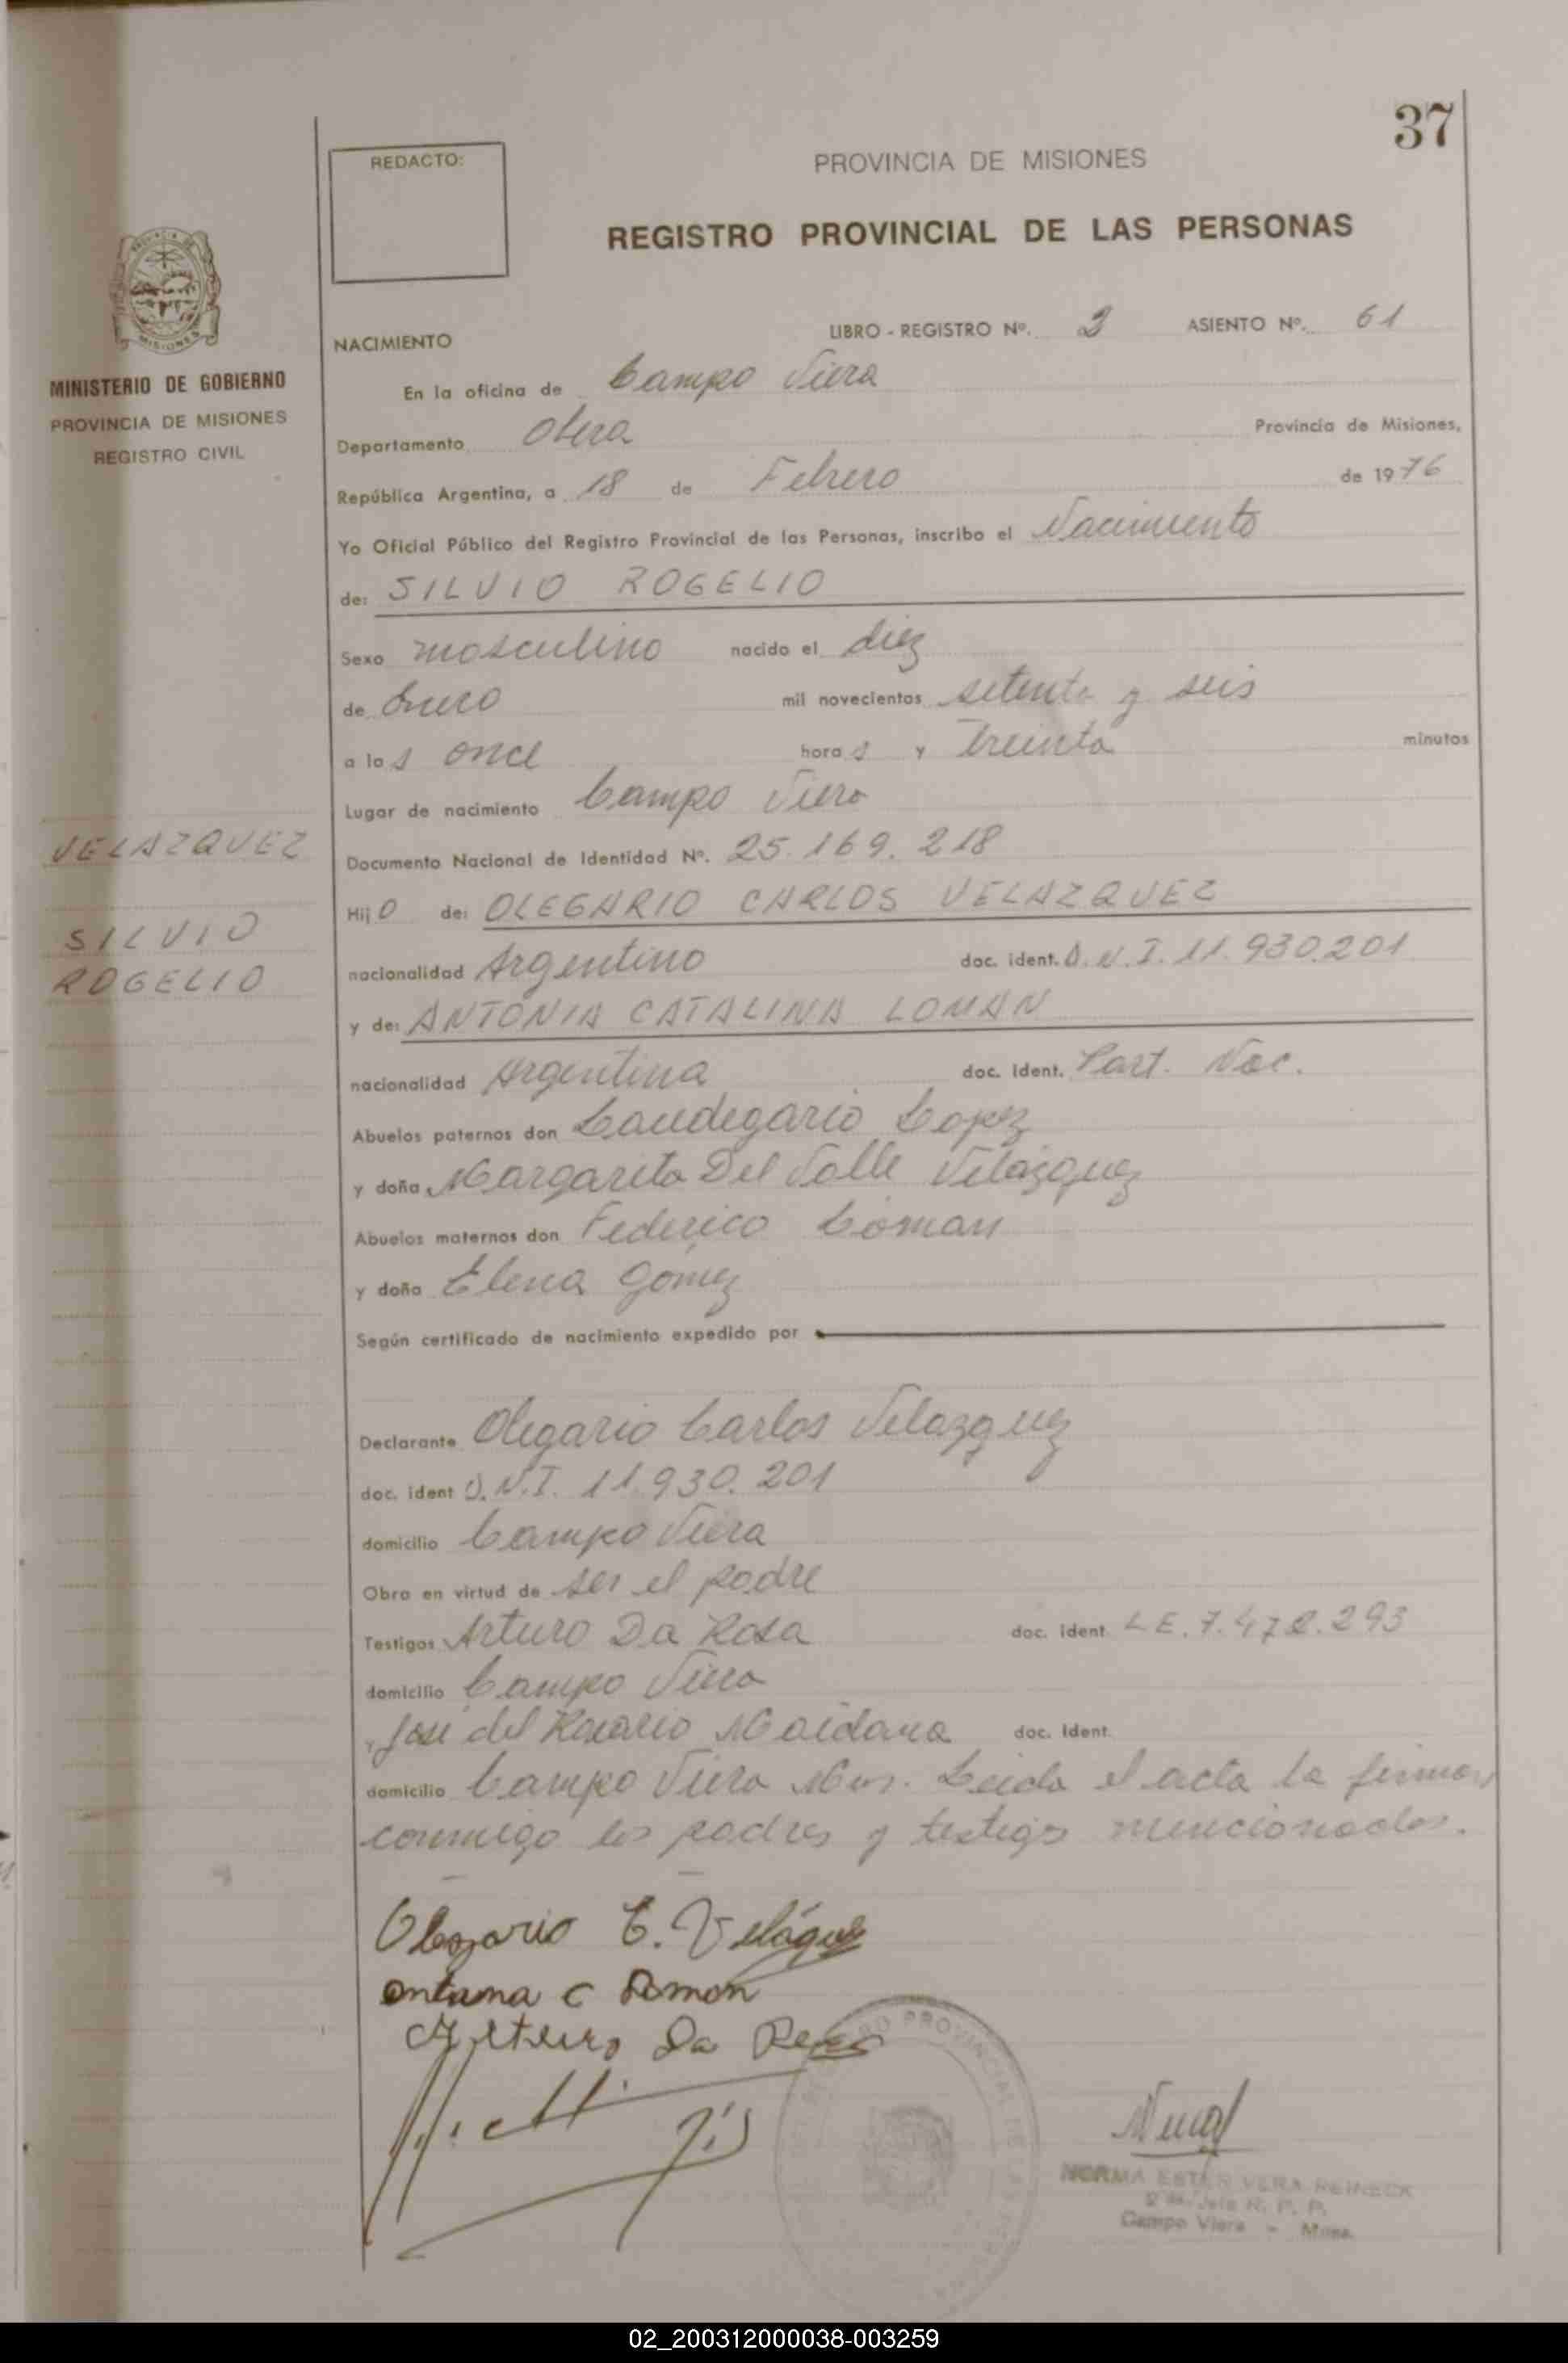 37
REDACTO:
PROVINCIA DE MISIONES
REGISTRO PROVINCIAL DE LAS PERSONAS
MISIONES
MINISTERIO DE GOBIERNO
PROVINCIA DE MISIONES
REGISTRO CIVIL
NACIMIENTO
LIBRO - REGISTRO Nº. ASIENTO Nº. 61
En la oficina de Campo Viera
Departamento Obera Provincia de Misiones,
República Argentina, a 18 de Febrero de 1976
Yo Oficial Público del Registro Provincial de las Personas, inscribo el Nacimiento
de: SILVIO ROGELIO
Sexo masculino nacido el diez
de Enero mil novecientos setenta y seis
a las once horas y Treinta minutos
Lugar de nacimiento Campo Viera
VELAZQUEZ
SILVIO
ROGELIO
Documento Nacional de Identidad Nº. 25.169.218
Hijo de: OLEGARIO CARLOS VELAZQUEZ
nacionalidad Argentino doc. ident. D.N.I. 11.930.201
y de: ANTONIA CATALINA LOMAN
nacionalidad Argentina doc. ident. Part. Nac.
Abuelos paternos don Laudegario Lopez
y doña Margarita Del Valle Velázquez
Abuelos maternos don Federico Loman
y doña Elena Gómez
Según certificado de nacimiento expedido por
Declarante Olegario Carlos Velazquez
doc. ident D.N.I. 11.930.201
domicilio Campo Viera
Obra en virtud de ser el padre
Testigos Arturo Da Rosa doc. ident. L.E. 7.472.293
domicilio Campo Viera
José del Rosario Maidana doc. ident.
domicilio Campo Viera Mns. Leida el acta la firman
conmigo los padres y testigos mencionados.
Olegario C.
C Loman
Da
NORMA ESTER VERA REINECK
Jefe R. P. P.
Campo Viera - Mnes.
02_200312000038-003259